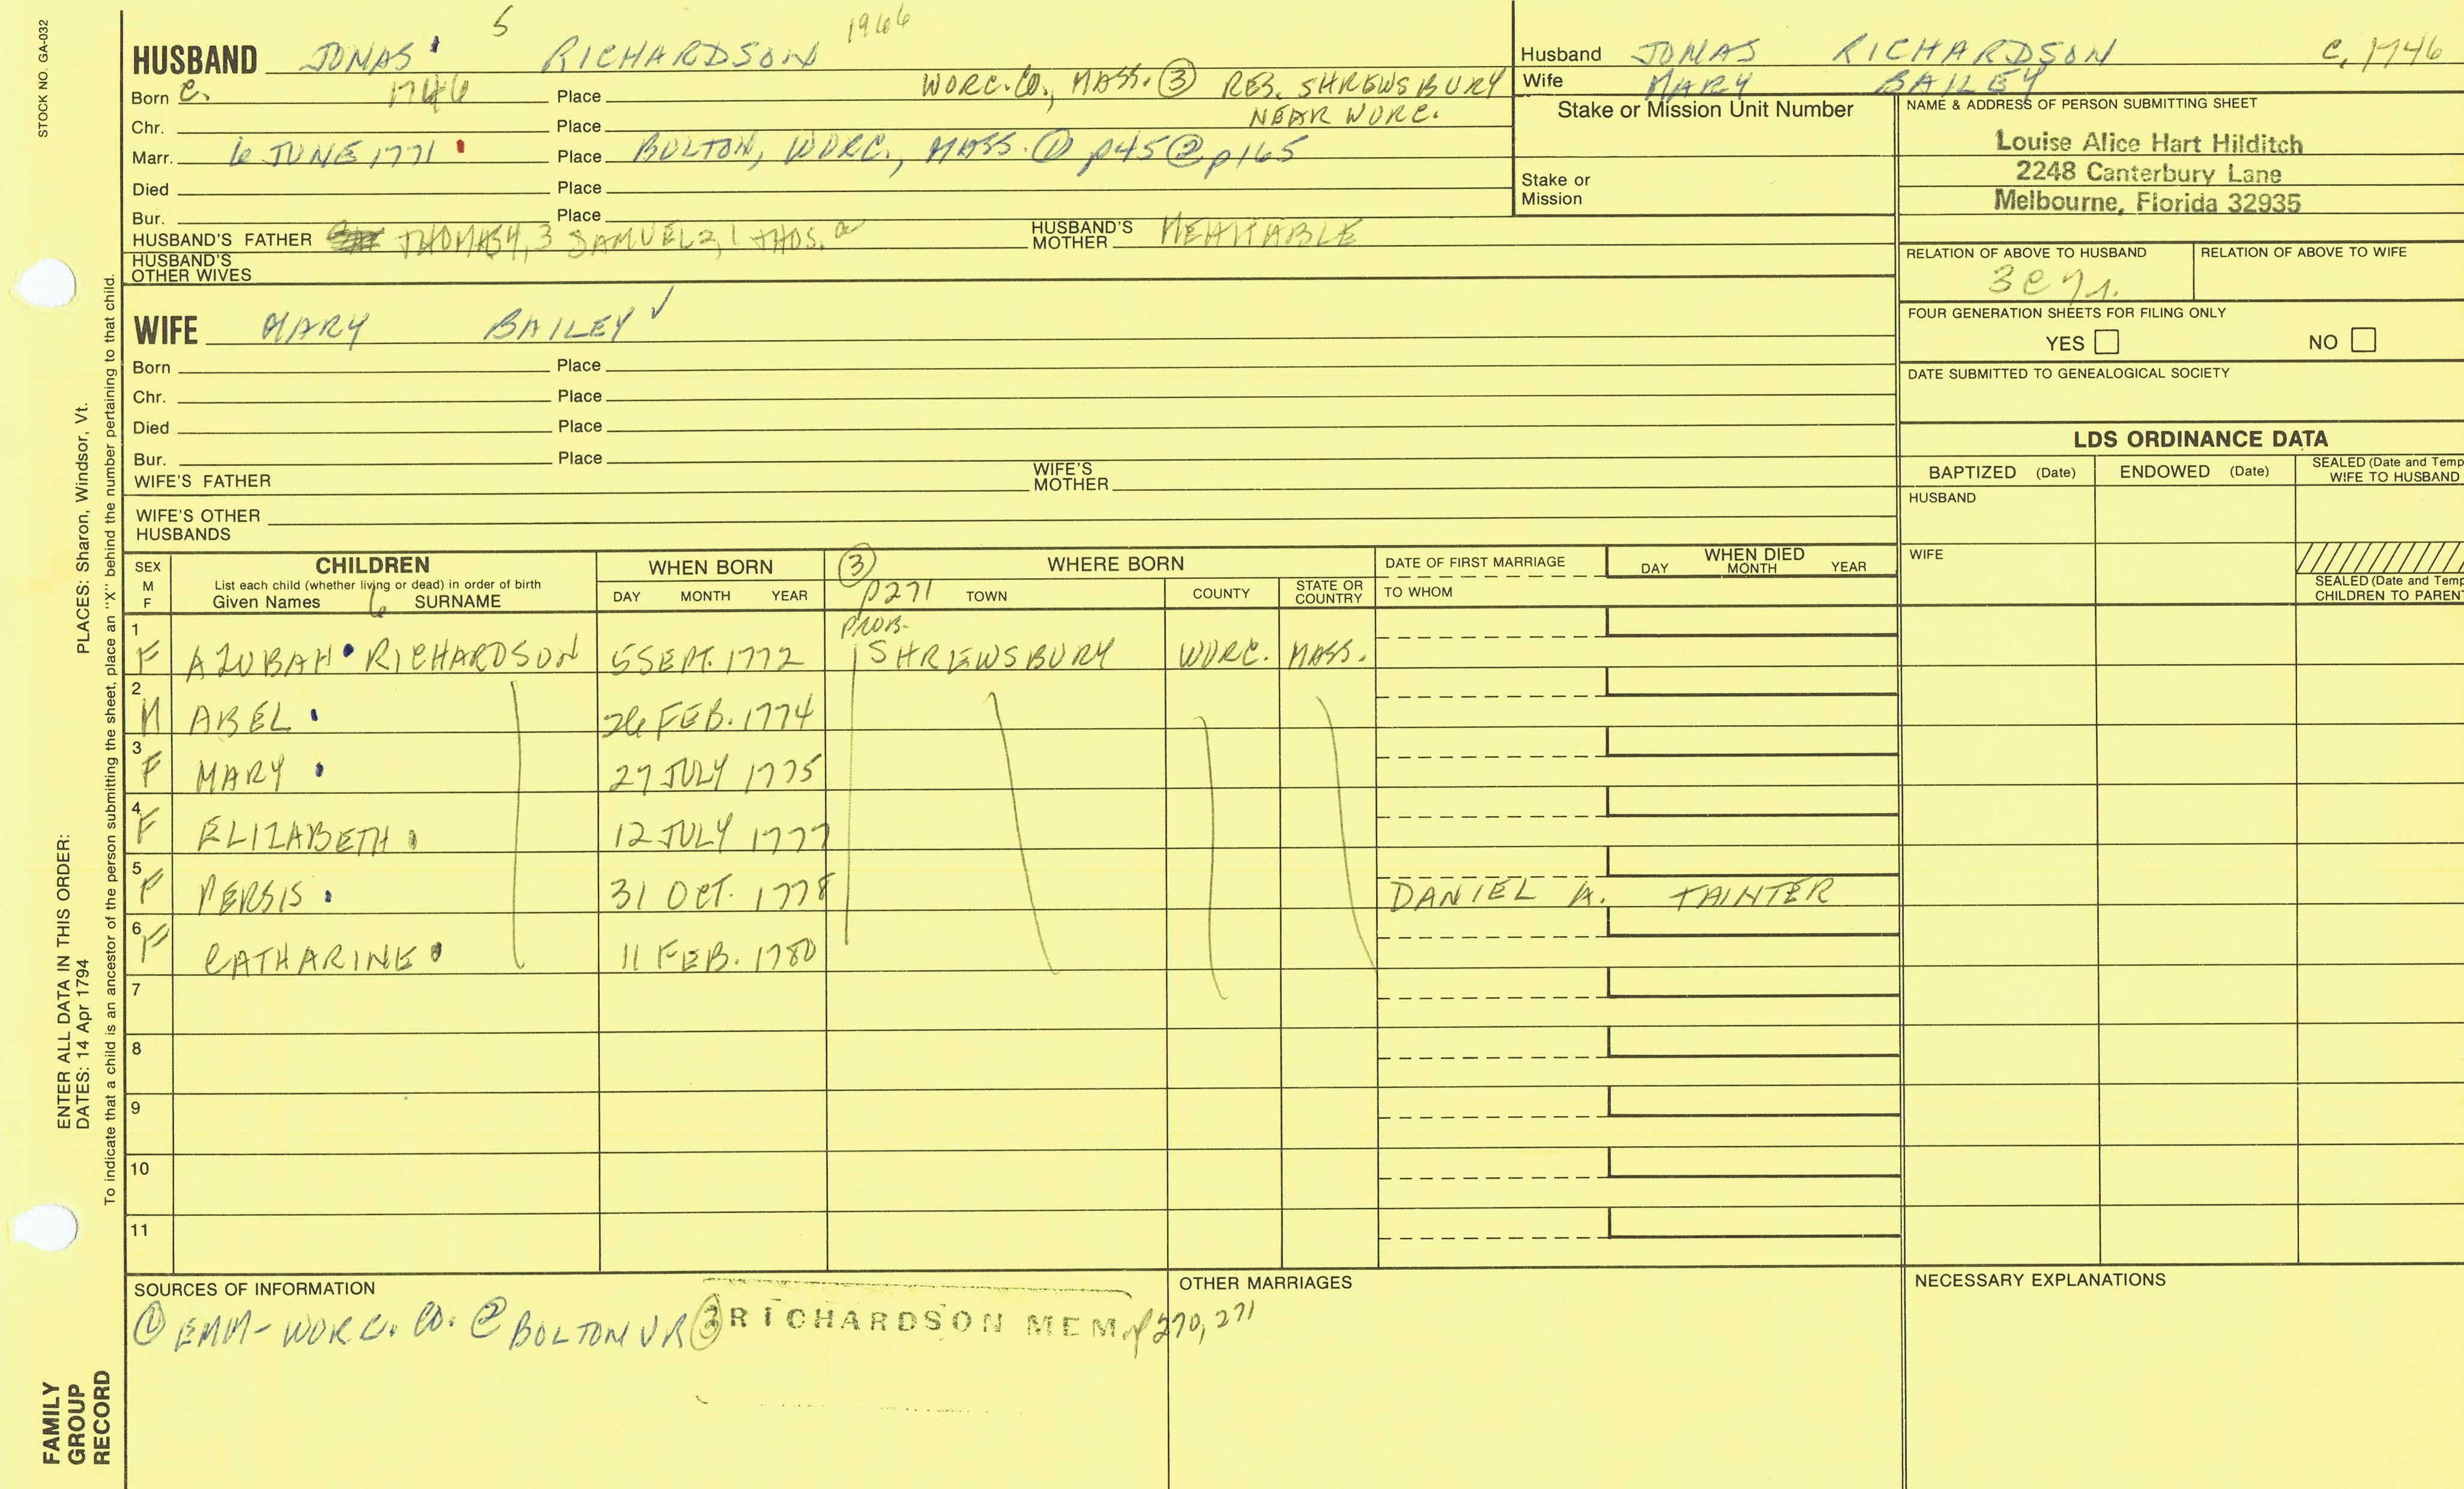 STOCK NO. GA-032
5 1966
HUSBAND JONAS RICHARDSON
Born C. 1746 Place WORC. CO., MASS. ③ RES. SHREWSBURY
Chr. Place NEAR WORC.
Marr. 6 JUNE 1771 Place BOLTON, WORC., MASS. ① p45 ② p165
Died Place
Bur. Place
HUSBAND'S FATHER THOMAS 4, 3 SAMUEL 2, 1 THOS. HUSBAND'S MOTHER MEHITABLE
HUSBAND'S OTHER WIVES
Husband JONAS RICHARDSON C. 1746
Wife MARY BAILEY
Stake or Mission Unit Number
Stake or Mission
NAME & ADDRESS OF PERSON SUBMITTING SHEET
Louise Alice Hart Hilditch
2248 Canterbury Lane
Melbourne, Florida 32935
RELATION OF ABOVE TO HUSBAND RELATION OF ABOVE TO WIFE
FOUR GENERATION SHEETS FOR FILING ONLY
YES NO
DATE SUBMITTED TO GENEALOGICAL SOCIETY
WIFE MARY BAILEY ✓
Born Place
Chr. Place
Died Place
Bur. Place
WIFE'S FATHER WIFE'S MOTHER
WIFE'S OTHER HUSBANDS
LDS ORDINANCE DATA
BAPTIZED (Date) ENDOWED (Date) SEALED (Date and Temp
WIFE TO HUSBAND
HUSBAND
WIFE
SEALED (Date and Temp
CHILDREN TO PARENT
SEX M F
CHILDREN
List each child (whether living or dead) in order of birth
Given Names 6 SURNAME
WHEN BORN
DAY MONTH YEAR
③ WHERE BORN
p271 TOWN COUNTY STATE OR COUNTRY
DATE OF FIRST MARRIAGE
TO WHOM
WHEN DIED
DAY MONTH YEAR
PROB.
1 F AZUBAH RICHARDSON 5 SEPT. 1772 SHREWSBURY WORC. MASS.
2 M ABEL 26 FEB. 1774
3 F MARY 27 JULY 1775
4 F ELIZABETH 12 JULY 1777
5 F PERSIS 31 OCT. 1778 DANIEL A. TAINTER
6 F CATHARINE 11 FEB. 1780
7
8
9
10
11
SOURCES OF INFORMATION
① EMM-WORC. CO. ② BOLTON VR ③ RICHARDSON MEM p 270, 271
OTHER MARRIAGES
NECESSARY EXPLANATIONS
PLACES: Sharon, Windsor, Vt.
ENTER ALL DATA IN THIS ORDER:
DATES: 14 Apr 1794
To indicate that a child is an ancestor of the person submitting the sheet, place an "X" behind the number pertaining to that child.
FAMILY
GROUP
RECORD